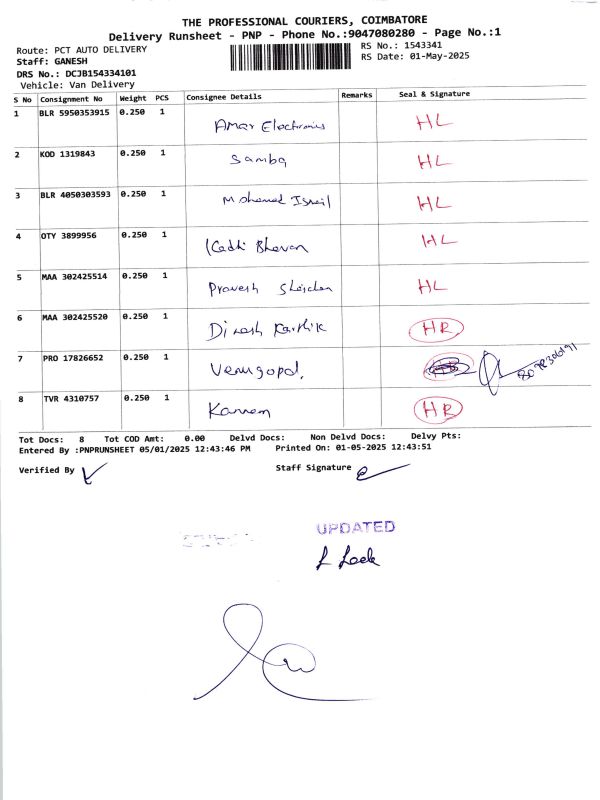 THE PROFESSIONAL COURIERS, COIMBATORE
Delivery Runsheet - PNP - Phone No.:9047080280 - Page No.:1
Route: PCT AUTO DELIVERY
RS No.: 1543341
Staff: GANESH
RS Date: 01-May-2025
DRS No.: DCJB154334101
Vehicle: Van Delivery
S No Consignment No Weight PCS Consignee Details Remarks Seal & Signature
1 BLR 5950353915 0.250 1 Amar Electronics HL
2 KOD 1319843 0.250 1 Samba HL
3 BLR 4050303593 0.250 1 Mohamed Ismail HL
4 OTY 3899956 0.250 1 Kadhi Bhavan HL
5 MAA 302425514 0.250 1 Pravesh HL
6 MAA 302425520 0.250 1 Dinesh Karthik HR
7 PRO 17826652 0.250 1 Venugopal
8 TVR 4310757 0.250 1 HR
Tot Docs: 8 Tot COD Amt: 0.00 Delvd Docs: Non Delvd Docs: Delvy Pts:
Entered By :PNPRUNSHEET 05/01/2025 12:43:46 PM Printed On: 01-05-2025 12:43:51
Verified By
Staff Signature
UPDATED